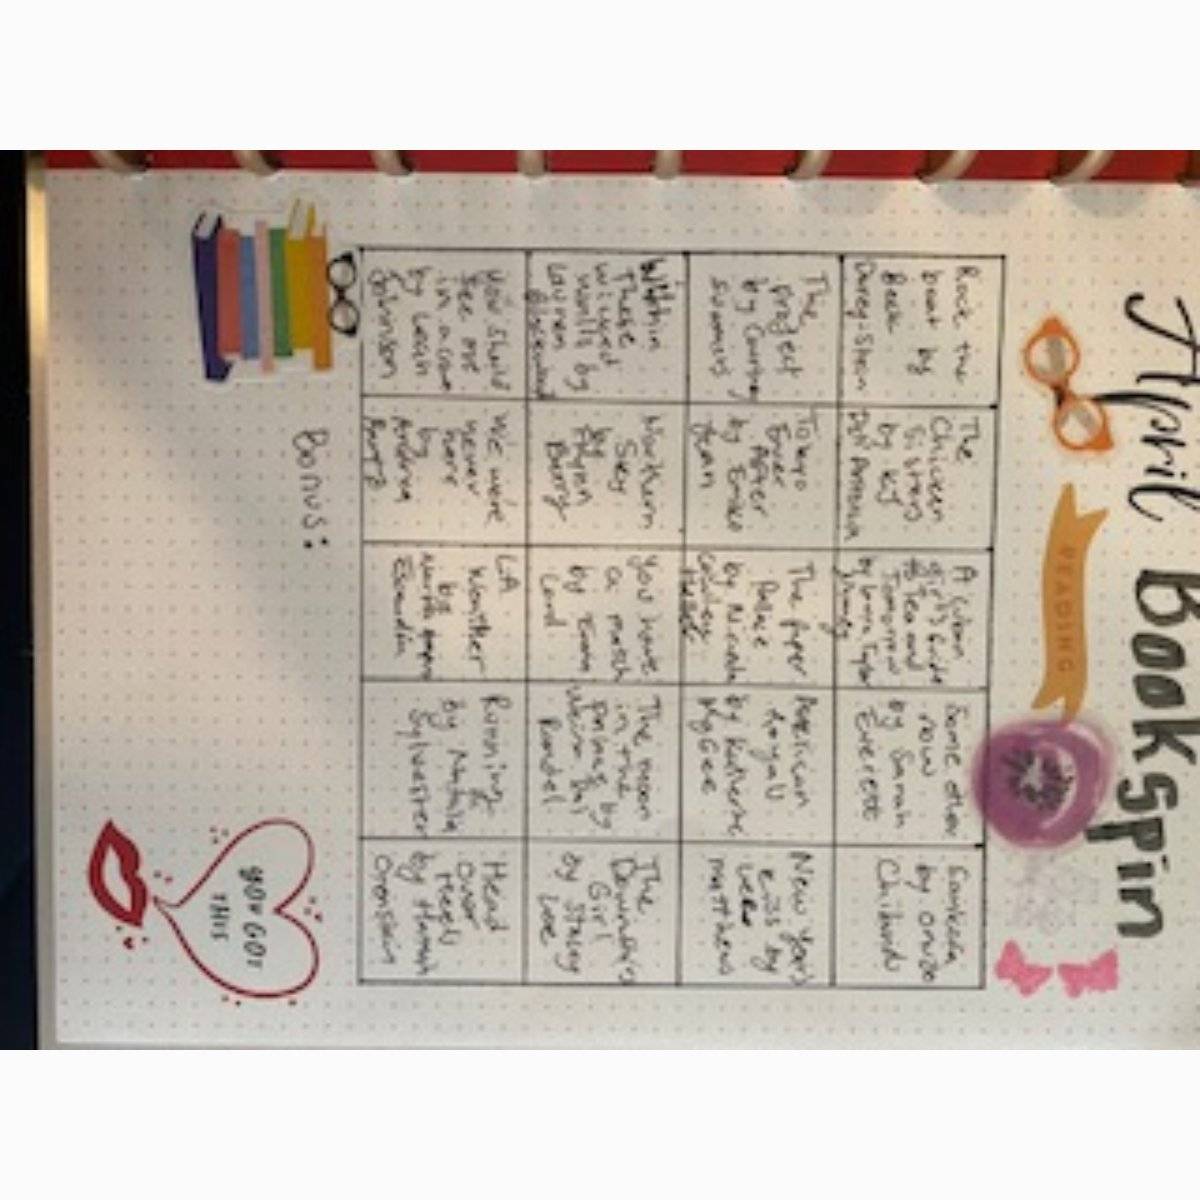 April Book spin
READING
Rock the
boat by
Beck
Dorey-Stein
The
Chicken
Sisters
by KJ
Dell'Antonia
A Cuban
girl's guide
to Tea and
Tomorrow
by Laura Taylor
Namey
Some other
now
by Sarah
Everett
Sankofa
by onuzo
Chibundu
The
project
by Courtney
summers
Tokyo
Ever
After
by Emiko
Jean
The paper
Palace
by Miranda
cowley
Heller
American
Royals
by Katherine
McGee
New years
kiss by
Lee
matthews
Within
These
wicked
walls by
Lauren
Blackwood
Northern
Sky
by
Flynn
Berry
You have
a match
by Emma
Lord
The moon
in the
palace by
Weina Dai
Randel
The
Downstairs
Girl
by Stacey
Lee
You should
See me
in a crown
by Leah
Johnson
We were
never
here
by
Andrea
Bartz
LA
Weather
by
maria amparo
Escandón
Running
by Natalia
Sylvester
Head
over
Heels
by Hannah
Orenstein
Bonus:
YOU GOT
THIS